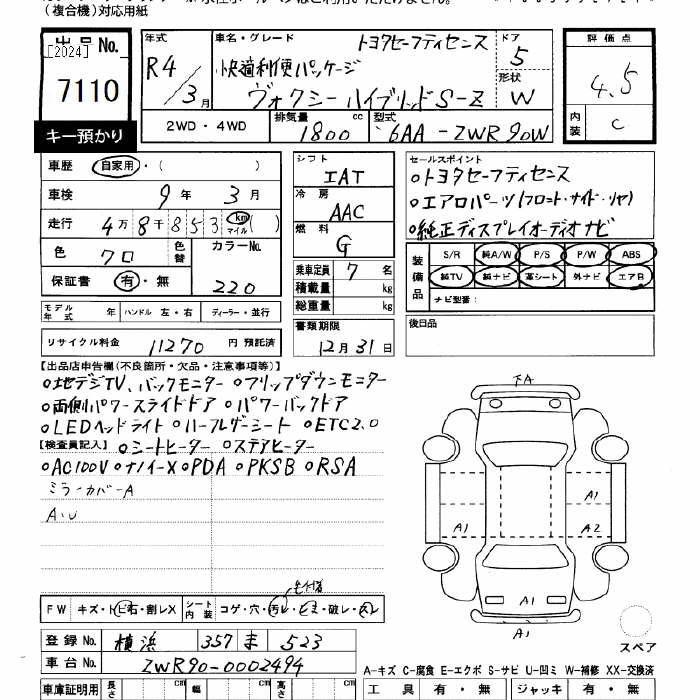 (複合機)対応用紙
出品No.
[2024]
7110
キー預かり
年式
R4/3月
車名・グレード
トヨタセーフティセンス
快適利便パッケージ
ヴォクシーハイブリッドS-Z
ドア
5
形状
W
評価点
4.5
内装
C
2WD・4WD
排気量
1800 cc
型式
6AA-ZWR90W
車歴 自家用・( )
車検 9年 3月
走行 4万8千853 km マイル ( )
色 クロ 色替 カラーNo.
220
保証書 有・無
モデル年式 年 ハンドル 左・右 ディーラー・並行
リサイクル料金 11270 円 預託済
シフト
IAT
冷房
AAC
燃料
G
乗車定員 7 名
積載量 kg
総重量 kg
書類期限
12月31日
セールスポイント
○トヨタセーフティセンス
○エアロパーツ(フロント・サイド・リヤ)
○純正ディスプレイオーディオナビ
装備品
S/R 純A/W P/S P/W ABS
純TV 純ナビ 革シート 外ナビ エアB
ナビ型番:
後日品
【出品店申告欄(不良箇所・欠品・注意事項等)】
○地デジTV、バックモニター ○フリップダウンモニター
○両側パワースライドドア ○パワーバックドア
○LEDヘッドライト ○ハーフレザーシート ○ETC2.0
【検査員記入】 ○シートヒーター ○ステアヒーター
○AC100V ○ナノイーX ○PDA ○PKSB ○RSA
ミラーカバーA
A・U
FA
A1
A1
A2
A1
スペア
FW キズ・トビ石・割レX シート内装 コゲ・穴・汚レ・シミ・破レ・灰
登録No. 横浜 357 ま 523
車台No. ZWR90-0002494
A-キズ C-腐食 E-エクボ S-サビ U-凹ミ W-補修 XX-交換済
車庫証明用 長さ cm 幅 cm 高さ cm
工具 有・無 ジャッキ 有・無